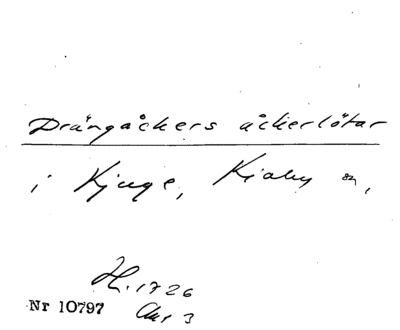 Drängåckers åckerlötar
i Kjuge, Kiaby sn,
H. 1726
Nr 10797
3